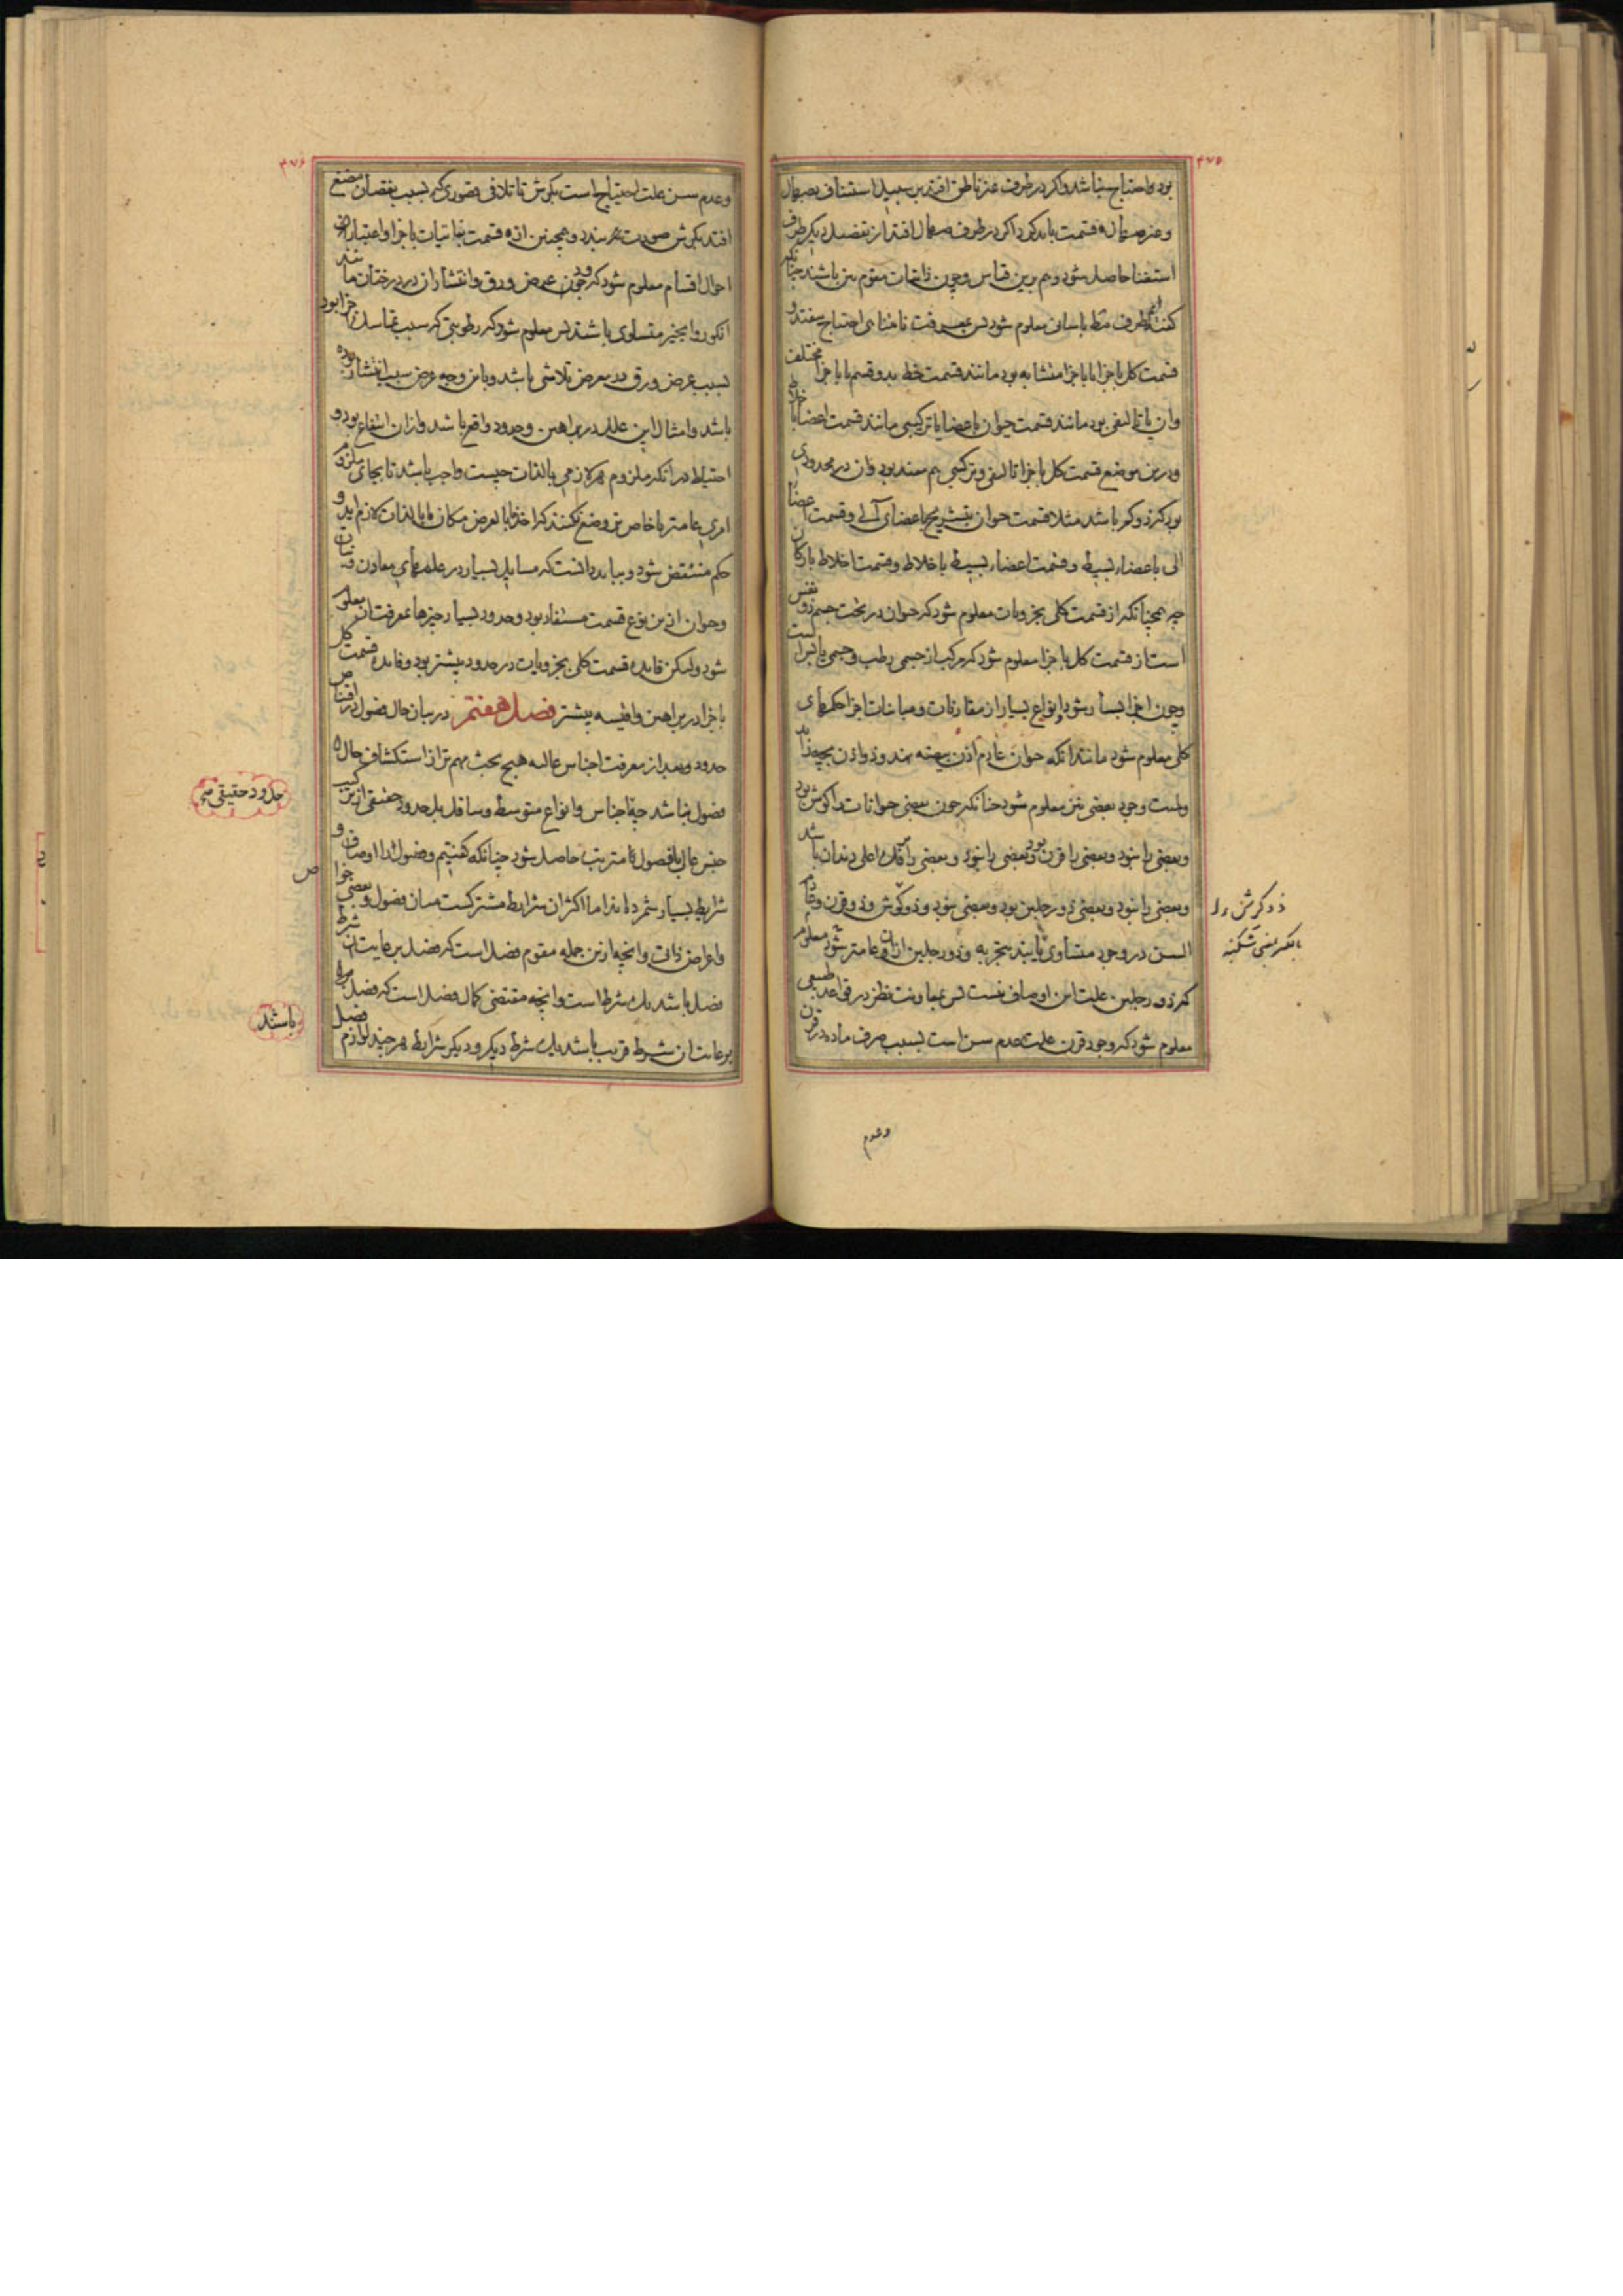 ۴۷۵
بود و احتیاج نباشد و اگر در طرف غیر ناطق افتد بر سبیل استیناف بصهال
و غیر صهال قسمت باید کرد و اگر در طرف صهال افتد از تفصیل دیگر طرف
استغنا حاصل شود و هم برین قیاس و چون ذاتیات مقوم من باشند چنانکه
گفته‌ایم طرف فقط بآسانی معلوم شود پس بمعرفت نامتناهی احتیاج نیفتد و
قسمت کل باجزا یا باجزا متشابه بود مانند قسمت خط بدو قسم یا باجزا مختلف
وان یا تالیفی بود مانند قسمت حیوان باعضا یا ترکیبی مانند قسمت اعضا باخلاط
و درین موضع قسمت کل باجزا تالیفی و ترکیبی هم مفید بود وان در محدودی
بود که ذو کم باشد مثلا قسمت حیوان بتشریح باعضای آلی و قسمت اعضاء
الی باعضاء بسیط و قسمت اعضاء بسیط باخلاط و قسمت اخلاط بارکان
چه همچنانکه از قسمت کلی بجزویات معلوم شود که حیوان در تحت جسم ذو نفس
است از قسمت کل باجزا معلوم شود که مرکب از جسمی رطب و جسمی یابس است
و چون اجزا بسیار شود و انواع بسیار از مقارنات و مباینات اجزا حکمهای
کلی معلوم شود مانند انکه حیوان عادم اذن بیضه نهد و ذو اذن بچه زاید
و لمیت وجود بعضی نیز معلوم شود چنانکه چون بعضی حیوانات را کوش بود
و بعضی را نبود و بعضی را قرن بود و بعضی را نبود و بعضی را فک اعلی دندان باشد
و بعضی را نبود و بعضی ذو رجلین بود و بعضی نبود و ذو کوش و ذو قرن و عادم
السن در وجود متساوی یابند بتجربه و ذو رجلین ازان عامتر شود معلوم
که ذو رجلین علت این اوصاف نیست پس بمعاونت نظر در قواعد طبیعی
معلوم شود که وجود قرن علت عدم سن است بسبب صرف ماده در قرن
ذو کرش را
و عدم
۴۷۶
و عدم سن علت احتیاج است بکرش تا تلافی قصوری که بسبب نقصان مضغ
افتد بکرش صورت بندد و همچنین از قسمت نباتیات باجزا و اعتبار
احوال اقسام معلوم شود که چون عرض ورق و انتشار ان در درختان مانند
انکور و انجیر متساوی باشند پس معلوم شود که رطوبتی که سبب تماسک اجزا بود
بسبب عرض ورق در معرض تلاشی باشد و باین وجه عرض سبب انتشار بوده
باشد و امثال این علل در براهین و حدود واقع باشد و ازان انتفاع بود و
احتیاط در انکه ملزوم هر لازمی بالذات چیست واجب باشد تا بجای ملزوم
امری عامتر یا خاص‌تر وضع نکنند که اخذ ما بالعرض مکان ما بالذات لازم اید و
حکم منتقض شود و بباید دانست که مسایل بسیار در علمهای معادن و نبات
و حیوان ازین نوع قسمت مستفاد بود و حدود بسیار چیزها بمعرفت ان معلوم
شود ولیکن فایده قسمت کلی بجزویات در حدود بیشتر بود و فایده قسمت کل
باجزا در براهین و اقیسه بیشتر فصل هفتم در بیان حال فصول در اقتناص
حدود و بعد از معرفت اجناس عالیه هیچ بحث مهم‌تر از استکشاف حال
فصول نباشد چه اجناس و انواع متوسط و سافل بل حدود حقیقی از ترکیب
جنس عالی با فصول مترتب حاصل شود چنانکه گفتیم و فصول را اوصاف و
شرایط بسیار شمرده‌اند اما اکثر ان شرایط مشترکست میان فصول و بعضی خواص
و اعراض ذاتی و انچه ازین جمله مقوم فصل است که فصل برعایت ان شرط
فصل باشد یک شرط است و انچه مقتضی کمال فصل است که فصل
برعایت ان شرط قریب باشد یک شرط دیگر و دیگر شرایط هر چند لوازم فصل
حدود حقیقی می
ص
باشند